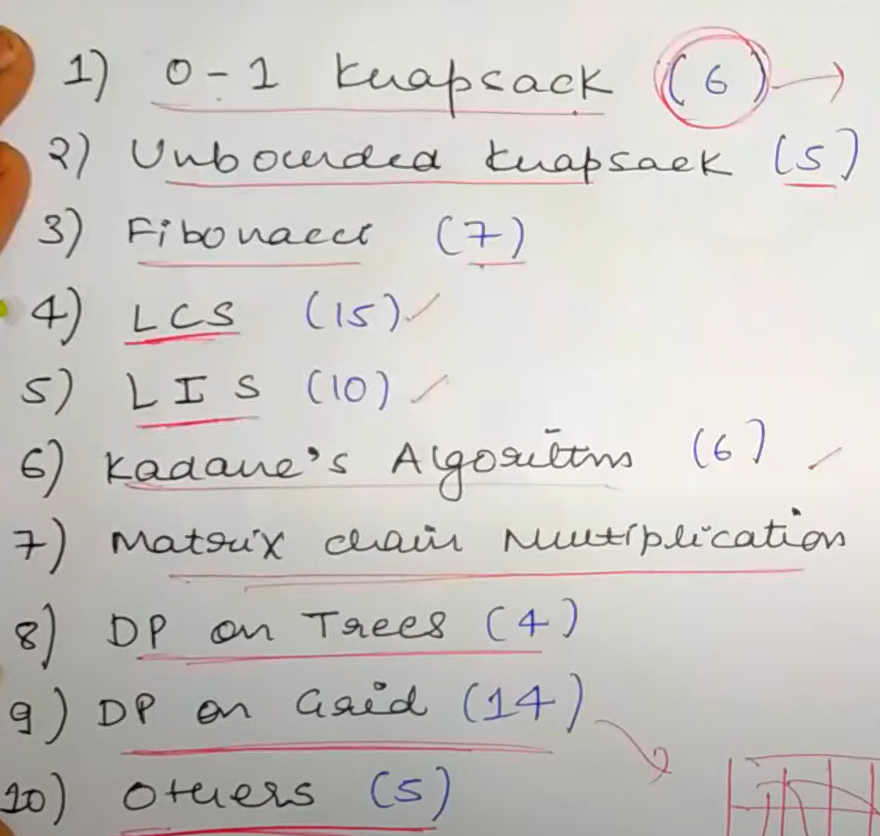 1) 0-1 Knapsack (6) →
2) Unbounded Knapsack (5)
3) Fibonacci (7)
4) LCS (15) ✓
5) LIS (10) ✓
6) Kadane's Algorithm (6) ✓
7) Matrix chain Multiplication
8) DP on Trees (4)
9) DP on Grid (14)
10) Others (5)